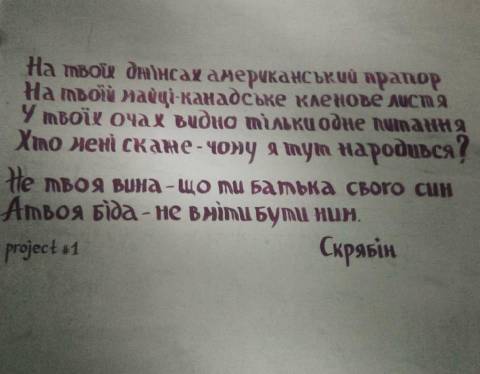 На твоїх джінсах американський прапор
На твоїй майці-канадське кленове листя
У твоїх очах видно тільки одне питання
Хто мені скаже-чому я тут народився?
Не твоя вина-що ти батька свого син
А твоя біда-не вміти бути ним.
project #1
Скрябін